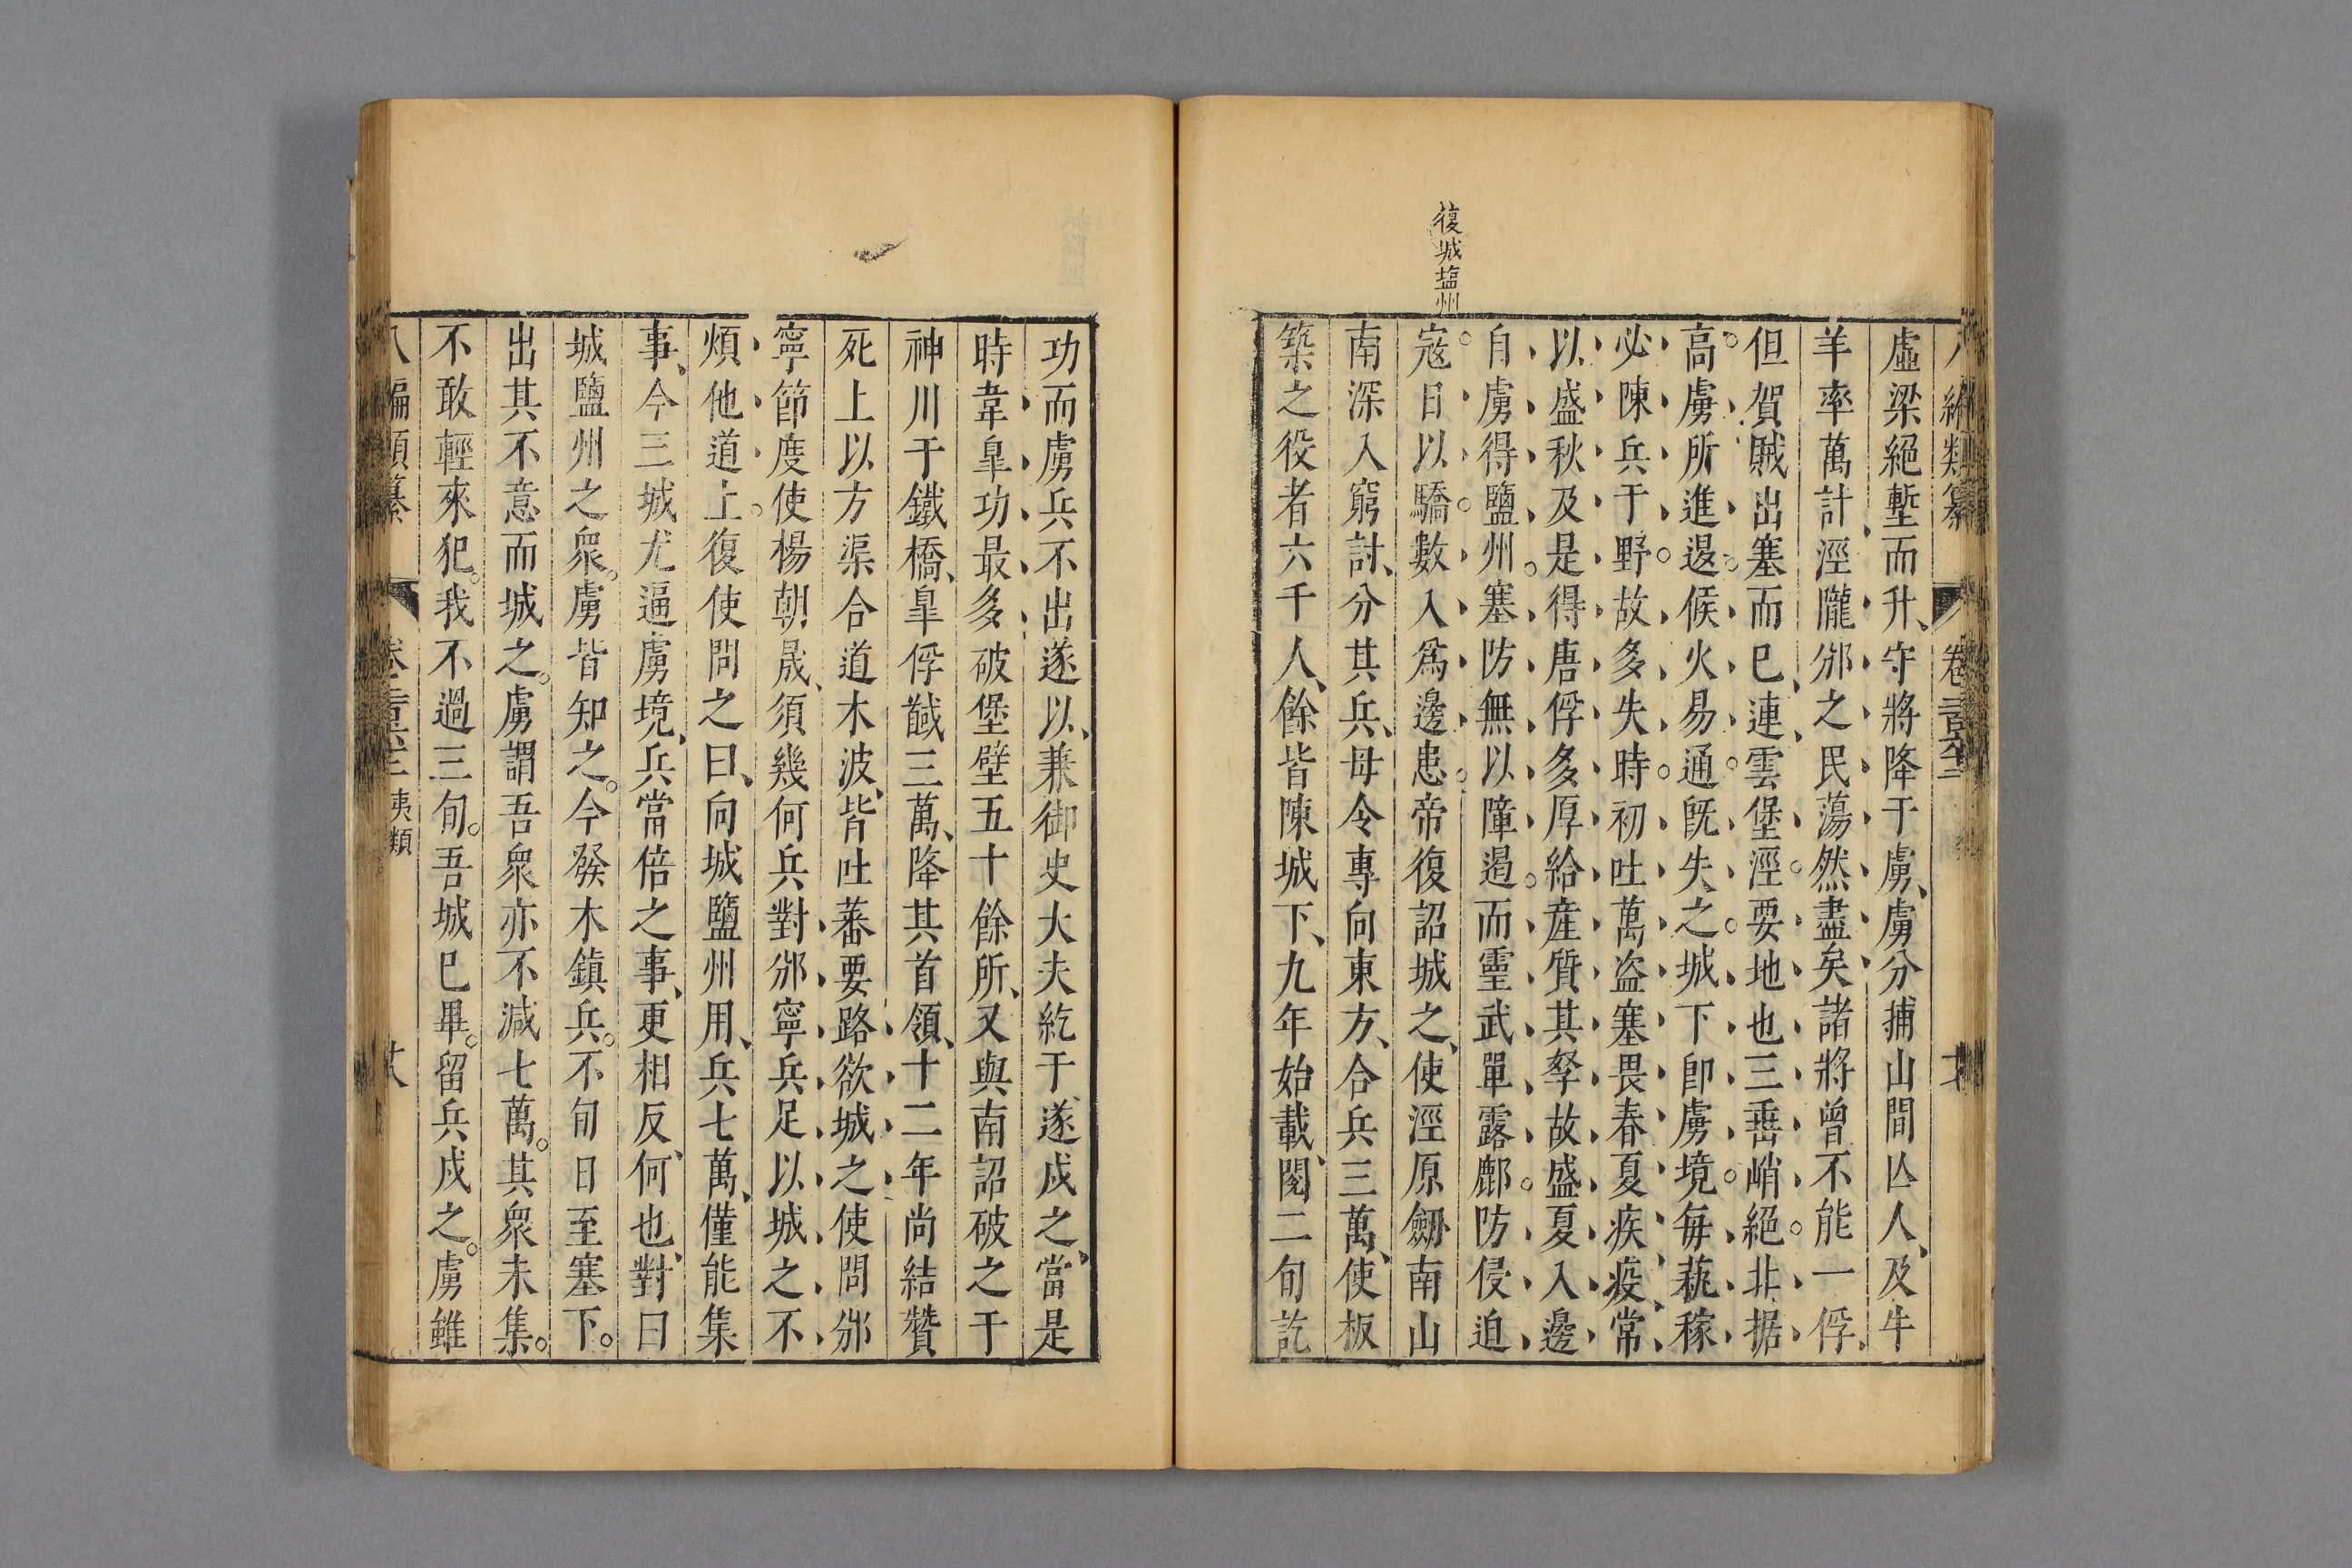 虛梁絕塹而升守將降于虜虜分捕山間亾人及牛
羊率萬計涇隴邠之民蕩然盡矣諸將曾不能一俘
但賀賊出塞而巳連雲堡涇要地也三垂峭絕北据
高虜所進退候火易通既失之城下卽虜境每蓺稼
必陳兵于野故多失時初吐萬盜塞畏春夏疾疫常
以盛秋及是得唐俘多厚給産質其孥故盛夏入邊
自虜得鹽州塞防無以障遏而靈武單露鄜防侵迫
復城塩州
寇日以驕數入爲邊患帝復詔城之使涇原劒南山
南深入窮討分其兵毋令專向東方合兵三萬使板
築之役者六千人餘皆陳城下九年始載閱二旬訖
功而虜兵不出遂以兼御史大夫紇于遂戍之當是
時韋臯功最多破堡壁五十餘所又與南詔破之于
神川于鐵橋臯俘馘三萬降其首領十二年尚結贊
死上以方渠合道木波皆吐蕃要路欲城之使問邠
寧節度使楊朝晟須幾何兵對邠寧兵足以城之不
煩他道上復使問之曰向城鹽州用兵七萬僅能集
事今三城尤逼虜境兵當倍之事更相反何也對曰
城鹽州之衆虜皆知之今發木鎮兵不旬日至塞下
出其不意而城之虜謂吾衆亦不減七萬其衆未集
不敢輕來犯我不過三旬吾城巳畢留兵戍之虜雖
八編類纂 夷類